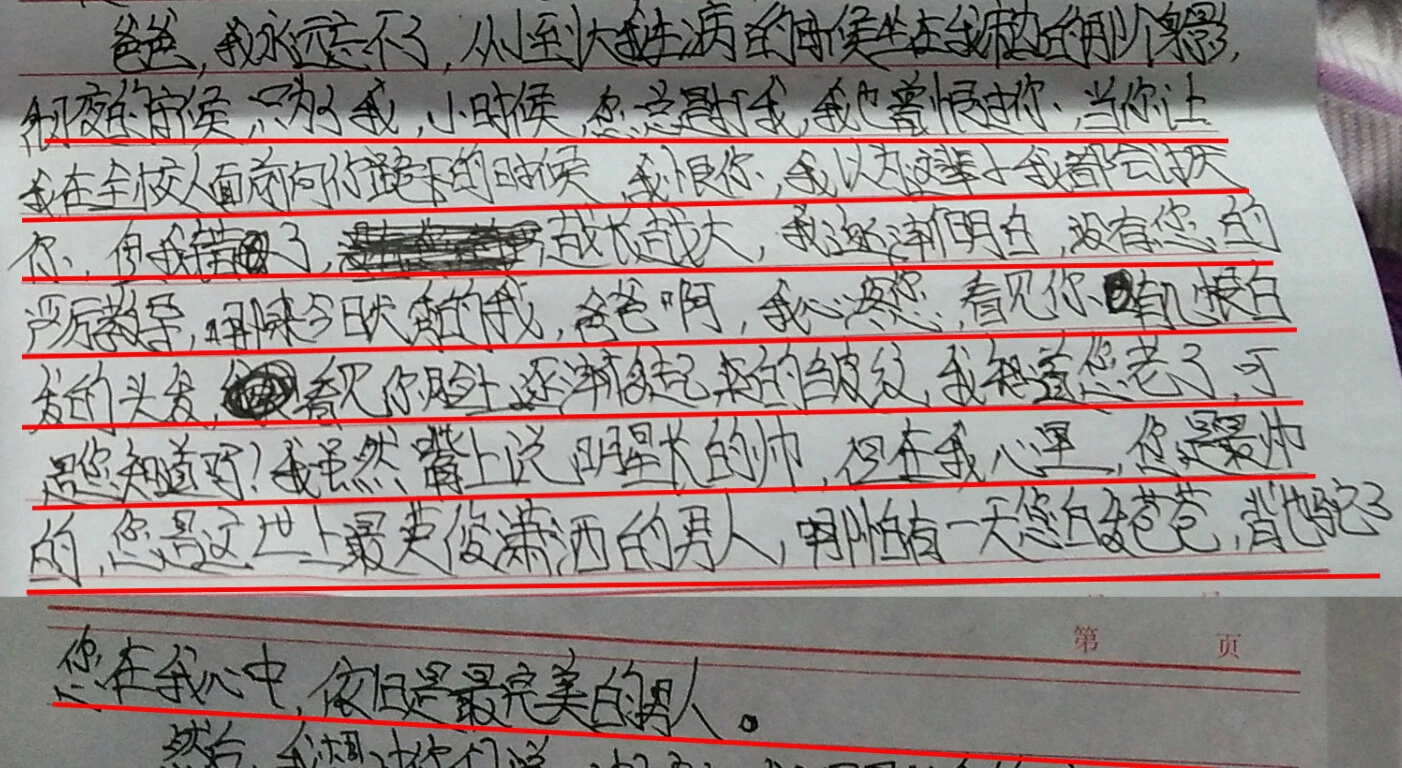 爸爸,我永远忘不了,从小到大我生病的时候坐在我床边的那个身影,
彻夜的守候,只为了我,小时候,您总是打我,我也曾恨过你,当你让
我在全校人面前向你道歉的时候,我恨你,我以为这辈子我都会讨厌
你,但我错了,越长越大,我逐渐明白,没有您的
严厉教导,哪来今日的我,爸爸啊,我心疼您,看见你有几根白
发的头发,看见你脸上逐渐多起来的皱纹,我知道您老了,可
是您知道吗?我虽然嘴上说明星长的帅,但在我心里,您是最帅
的,您是这世上最英俊潇洒的男人,哪怕有一天您白发苍苍,背也驼了
第 页
您在我心中,依旧是最完美的男人。
然后,我想对你们说